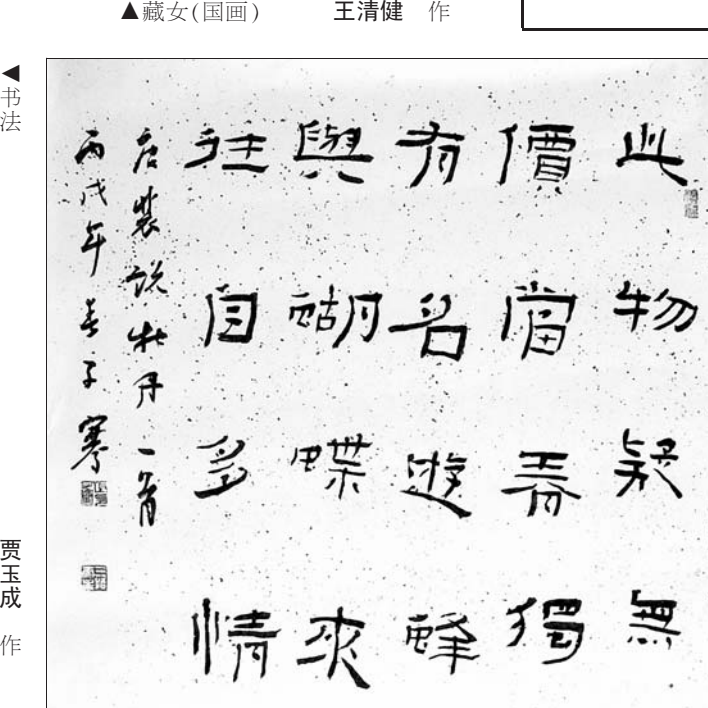 ▲藏女(国画) 王清健 作
◀书法 贾玉成 作
此物疑無
價當春獨
有名遊蜂
與蝴蝶來
往自多情
唐裴说牡丹一首
丙戌年春子